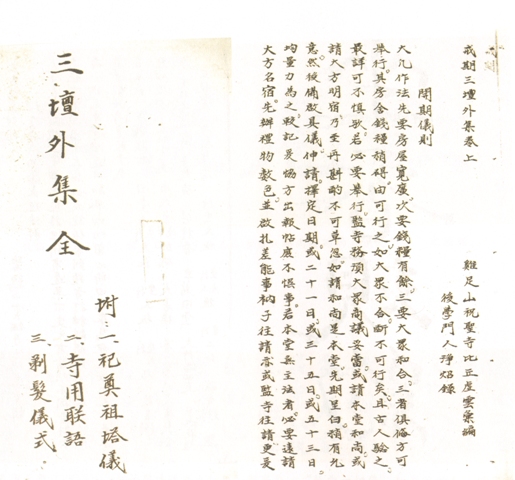 戒期三壇外集卷上
雞足山祝聖寺比丘虛雲編
後學門人淨焰錄
開期儀則
大凡作法先要房屋寬廣次要錢糧有餘三要大眾和合三者俱備方可
舉行其房舍錢糧稍碍由可行之如大眾不合斷不可行矣且古人驗之
最詳可不慎歟若必要舉行監寺務須大眾商議妥當或請本堂和尚或
請大方明宿乃至再斟酌不可草忽如請和尚是本堂先期呈白稍有允
意然後備啟具儀伸請擇定日期或二十一日或三十五日或五十三日
均量力為之
大方名宿先辦裡物數色並啟扎差能事衲子往請
三壇外集 全
附：一、祀奠祖塔儀
二、寺用联語
三、剃髮儀式